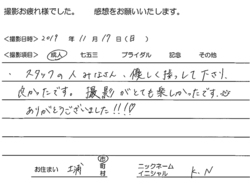 撮影お疲れ様でした。 感想をお願いいたします。
<撮影日時> 2019 年 11月 17日(日)
<撮影項目> 成人 七五三 ブライダル 記念 その他
・スタッフの人みなさん、優しく接して下さり、
良かったです。撮影がとても楽しかったです。
ありがとうございました!!!
お住まい 土浦 市 町 村 ニックネーム イニシャル K.N